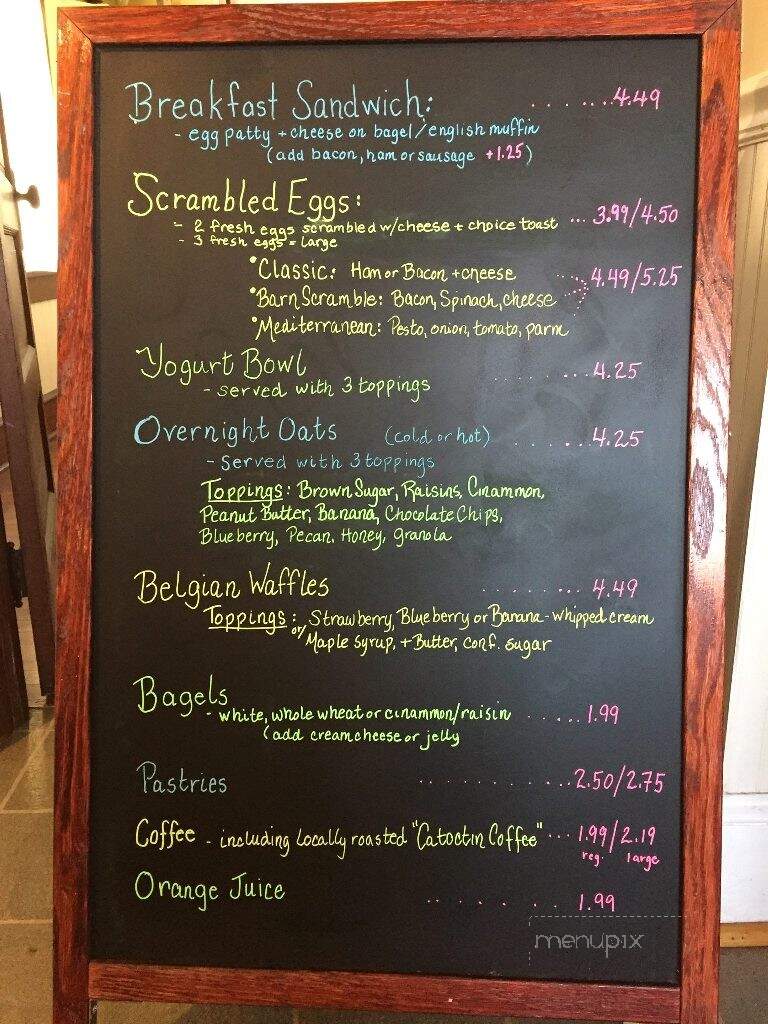 Breakfast Sandwich: . . . . . . . 4.49
- egg patty + cheese on bagel/english muffin
(add bacon, ham or sausage +1.25)
Scrambled Eggs:
- 2 fresh eggs scrambled w/cheese + choice toast ... 3.99/4.50
- 3 fresh eggs = large
• Classic: Ham or Bacon + cheese ..... 4.49/5.25
• Barn Scramble: Bacon, Spinach, cheese
• Mediterranean: Pesto, onion, tomato, parm
Yogurt Bowl . . . . . . . . . 4.25
- served with 3 toppings
Overnight Oats (cold or hot) . . . . . . . 4.25
- Served with 3 toppings
Toppings: Brown Sugar, Raisins, Cinammon,
Peanut Butter, Banana, Chocolate Chips,
Blueberry, Pecan, Honey, granola
Belgian Waffles . . . . . . . . . 4.49
Toppings: Strawberry, Blueberry or Banana - whipped cream
or/ Maple Syrup, + Butter, conf. sugar
Bagels
- white, whole wheat or cinammon/raisin . . . . . 1.99
(add creamcheese or jelly
Pastries . . . . . . . . . . . 2.50/2.75
Coffee - including locally roasted "Catoctin Coffee" ... 1.99/2.19
reg. large
Orange Juice . . . . . . . . 1.99
menupix